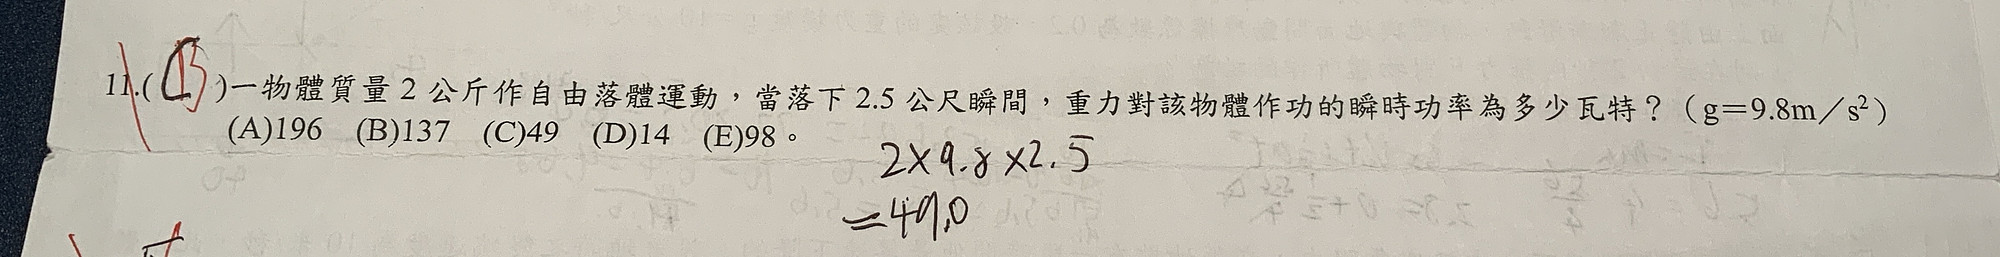 11.( B )一物體質量 2 公斤作自由落體運動，當落下 2.5 公尺瞬間，重力對該物體作功的瞬時功率為多少瓦特？（g＝9.8m／s²）
(A)196 (B)137 (C)49 (D)14 (E)98。
2×9.8×2.5
=49.0